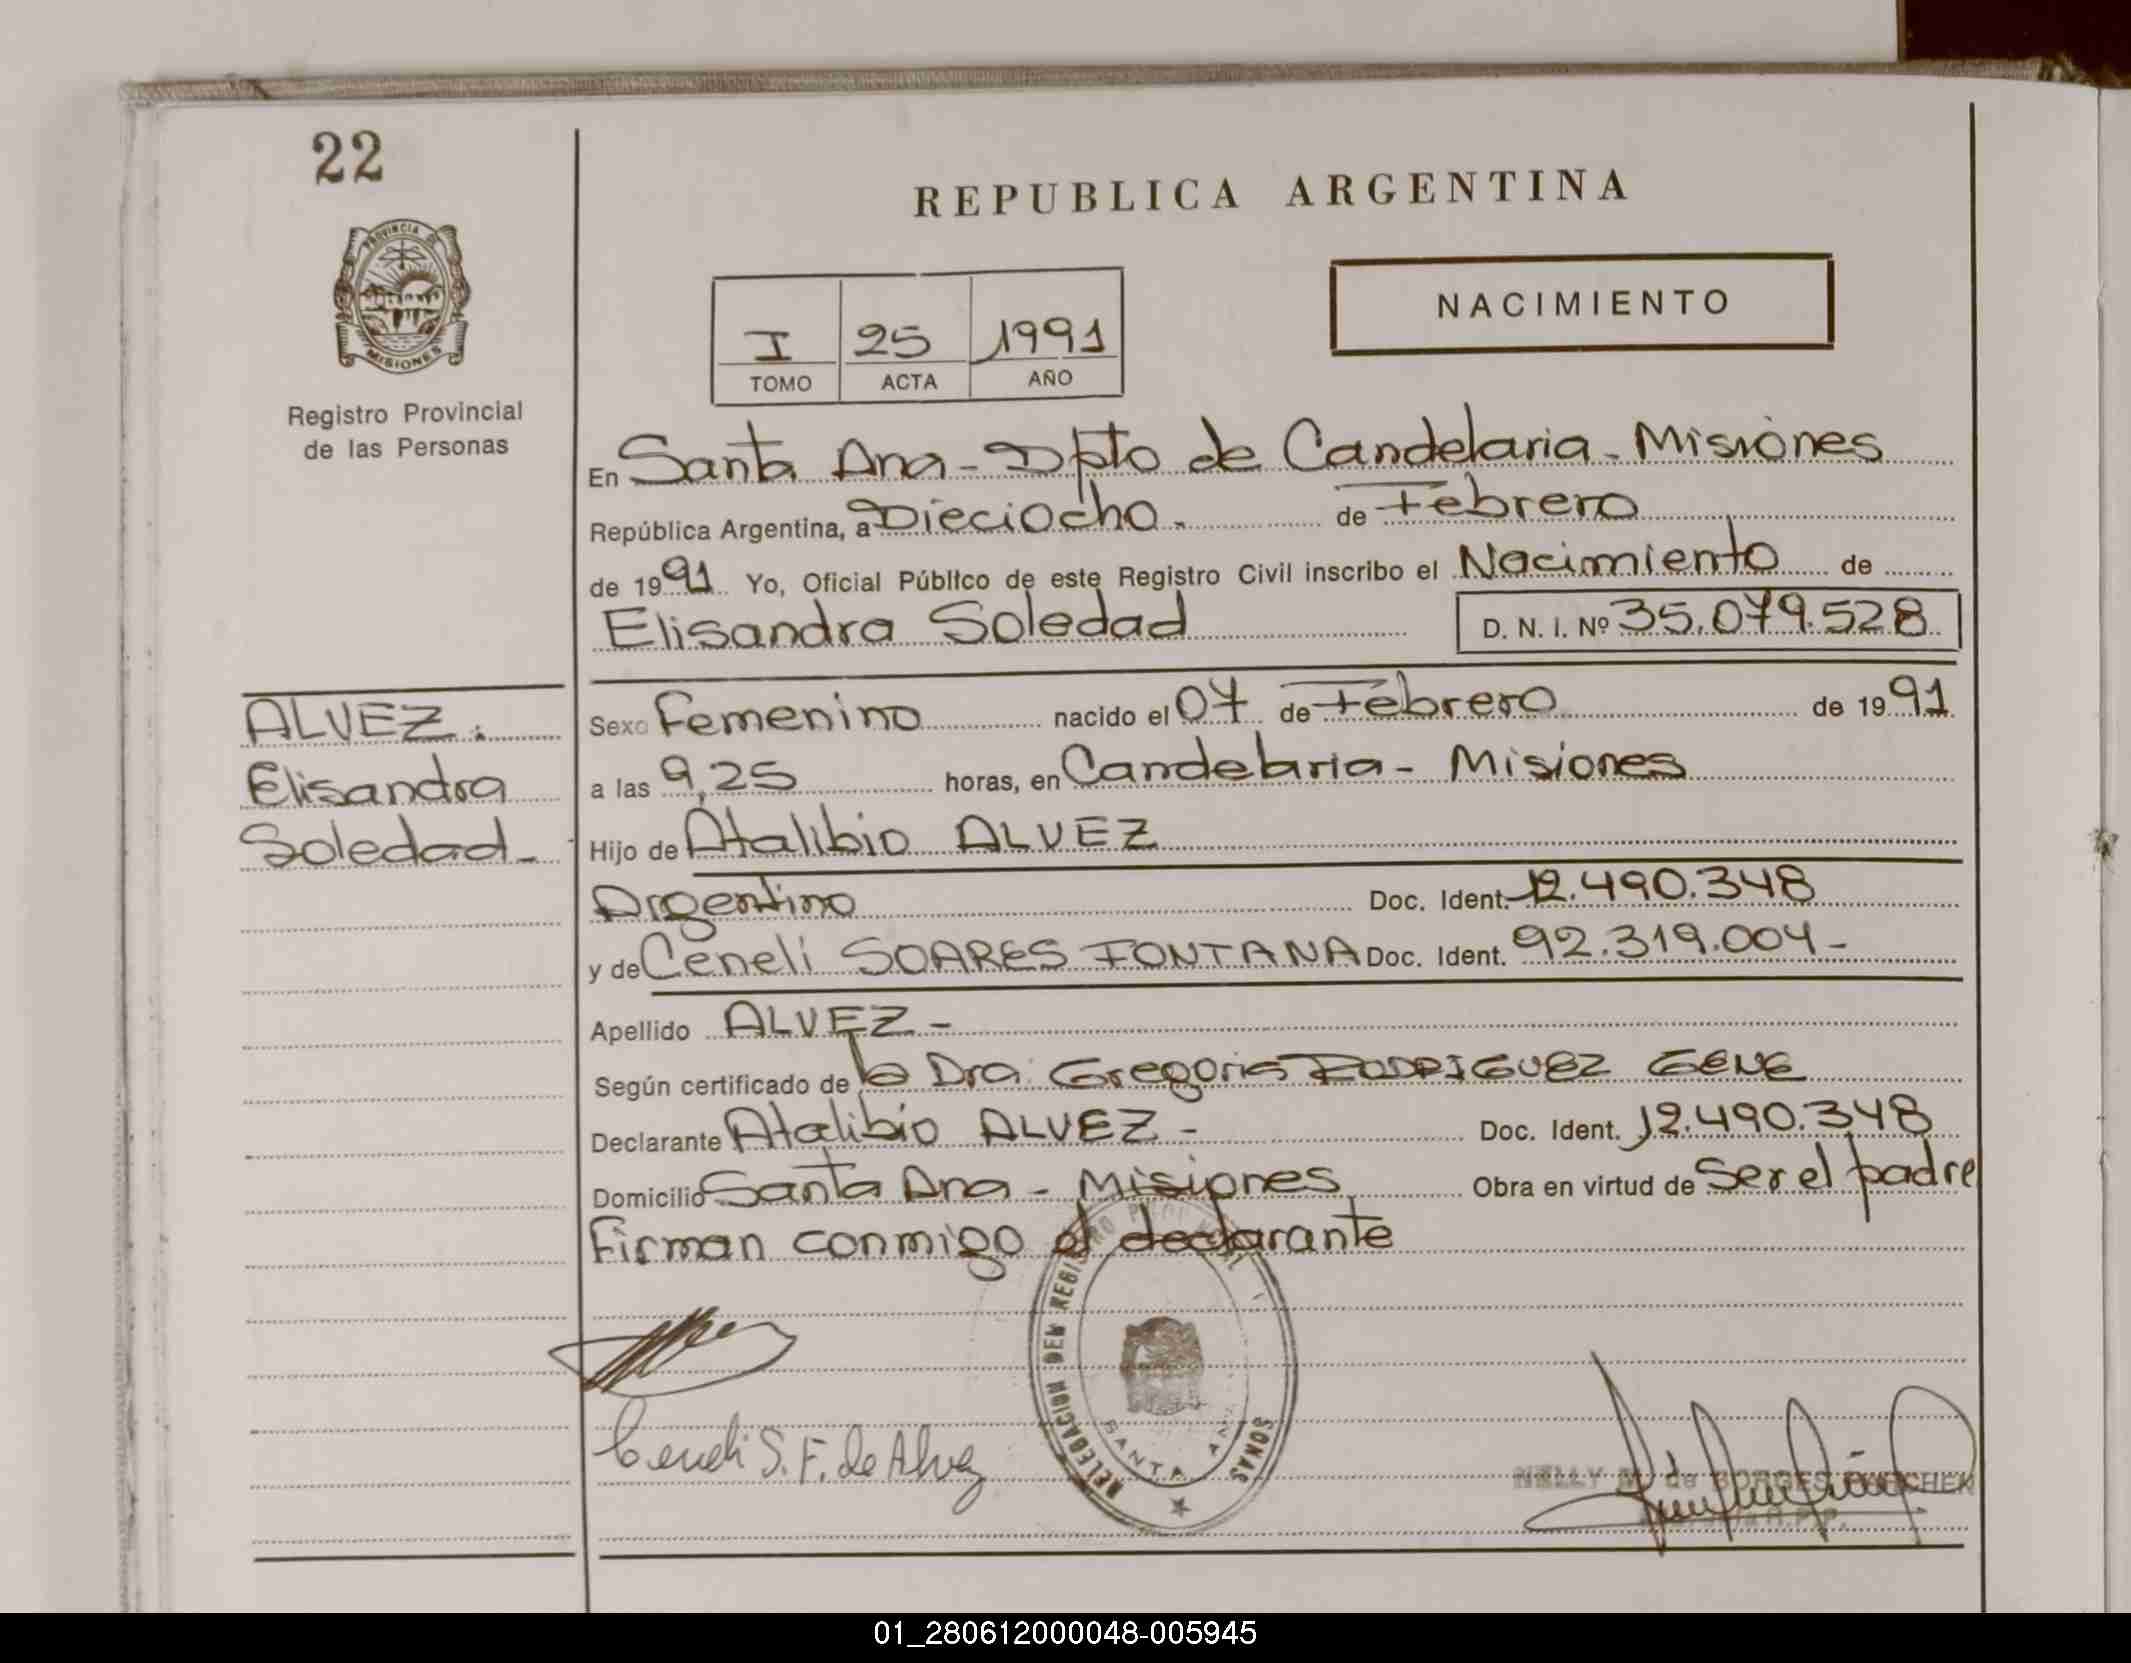 22
PROVINCIA DE
MISIONES
Registro Provincial
de las Personas
REPUBLICA ARGENTINA
NACIMIENTO
I 25 1991
TOMO ACTA AÑO
En Santa Ana - Dpto de Candelaria - Misiones
República Argentina, a Dieciocho. de Febrero
de 1991 Yo, Oficial Público de este Registro Civil inscribo el Nacimiento de
Elisandra Soledad D. N. I. Nº 35.079.528
ALVEZ.
Elisandra
Soledad -
Sexo Femenino nacido el 07 de Febrero de 1991
a las 9,25 horas, en Candelaria - Misiones
Hijo de Atalibio ALVEZ
Argentino Doc. Ident. 12.490.348
y de Ceneli SOARES FONTANA Doc. Ident. 92.319.004 -
Apellido ALVEZ -
Según certificado de la Dra. Gregoria RODRIGUEZ GENE
Declarante Atalibio ALVEZ - Doc. Ident. 12.490.348
Domicilio Santa Ana - Misiones Obra en virtud de Ser el padre
Firman conmigo el declarante
DELEGACION DEL REGISTRO PROVINCIAL
SANTA ANA
Ceneli S. F. de Alvez
NELLY M. de BORGES
01_280612000048-005945